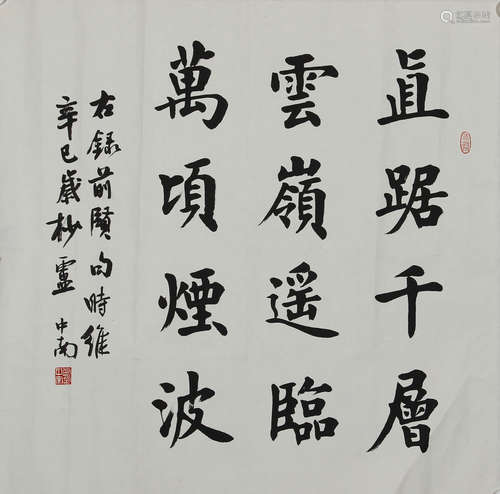 直踞千層
雲嶺遥臨
萬頃煙波
右録前賢句時維
辛巳歲杪盧中南